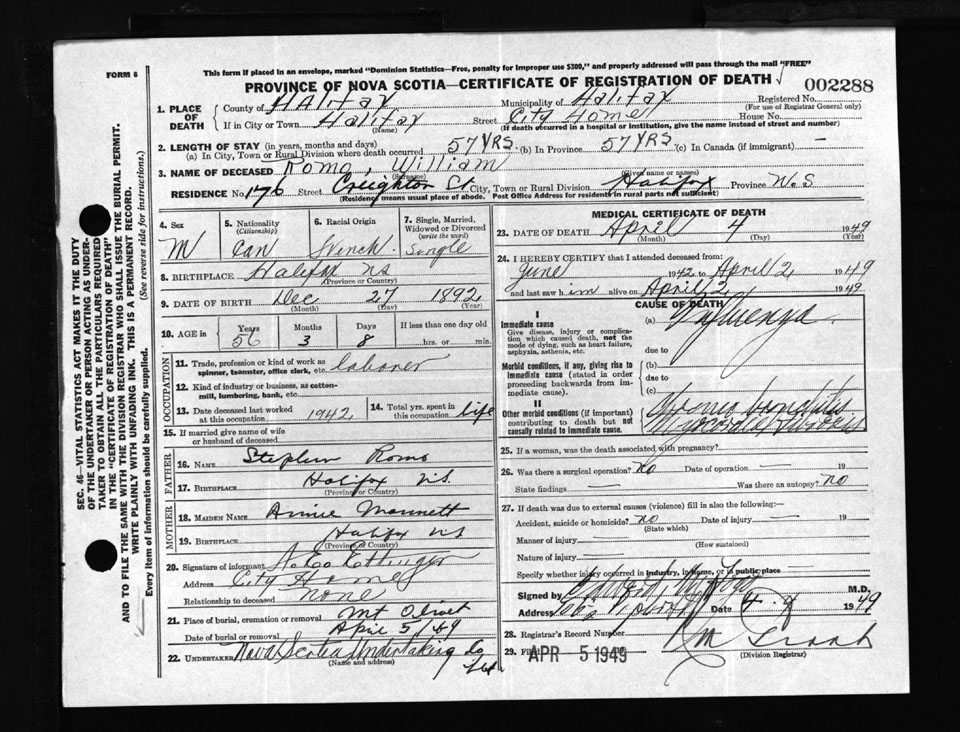 FORM 6
This form if placed in an envelope, marked "Dominion Statistics—Free, penalty for improper use $300," and properly addressed will pass through the mail "FREE"
PROVINCE OF NOVA SCOTIA—CERTIFICATE OF REGISTRATION OF DEATH
002288
1. PLACE OF DEATH
County of Halifax Municipality of Halifax Registered No.
(For use of Registrar General only)
If in City or Town Halifax Street City Home House No.
(Name) (If death occurred in a hospital or institution, give the name instead of street and number)
2. LENGTH OF STAY (in years, months and days)
(a) In City, Town or Rural Division where death occurred 57 YRS. (b) In Province 57 YRS. (c) In Canada (if immigrant) —
3. NAME OF DECEASED Romo, William
(Surname) (Given name or names)
RESIDENCE No. 176 Street Creighton St. City, Town or Rural Division Halifax Province N.S
(Residence means usual place of abode. Post Office Address for residents in rural parts not sufficient)
4. Sex M
5. Nationality (Citizenship) Can
6. Racial Origin French.
7. Single, Married, Widowed or Divorced (write the word) Single
8. BIRTHPLACE Halifax NS
(Province or Country)
9. DATE OF BIRTH Dec 27 1892
(Month) (Day) (Year)
10. AGE in Years 56 Months 3 Days 8 If less than one day old hrs. or min.
OCCUPATION
11. Trade, profession or kind of work as spinner, teamster, office clerk, etc. laborer
12. Kind of industry or business, as cotton-mill, lumbering, bank, etc.
13. Date deceased last worked at this occupation 1942
14. Total yrs. spent in this occupation life
15. If married give name of wife or husband of deceased
FATHER
16. NAME Stephen Romo
17. BIRTHPLACE Halifax N.S.
(Province or Country)
MOTHER
18. MAIDEN NAME Annie Mannett
19. BIRTHPLACE Halifax NS
(Province or Country)
20. Signature of informant
Address City Home
Relationship to deceased none
21. Place of burial, cremation or removal Mt Olivet
Date of burial or removal April 5/49
22. UNDERTAKER Nova Scotia Undertaking Co
(Name and address)
MEDICAL CERTIFICATE OF DEATH
23. DATE OF DEATH April 4 1949
(Month) (Day) (Year)
24. I HEREBY CERTIFY that I attended deceased from:
June 1942 to April 2 1949
and last saw him alive on April 2 1949
CAUSE OF DEATH
I
Immediate cause (a) Influenza
Give disease, injury or complication which caused death, not the mode of dying, such as heart failure, asphyxia, asthenia, etc.
due to
Morbid conditions, if any, giving rise to immediate cause (stated in order proceeding backwards from immediate cause).
(b)
due to
(c)
II
Other morbid conditions (if important) contributing to death but not causally related to immediate cause.
Chronic bronchitis
25. If a woman, was the death associated with pregnancy?
26. Was there a surgical operation? no Date of operation — 19
State findings — Was there an autopsy? no
27. If death was due to external causes (violence) fill in also the following:
Accident, suicide or homicide? no Date of injury — 19
(State which)
Manner of injury —
(How sustained)
Nature of injury —
Specify whether injury occurred in industry, in home, or in public place
Signed by M.D.
Address Date 1949
28. Registrar's Record Number
29. FILED APR 5 1949
(Division Registrar)
SEC. 46—VITAL STATISTICS ACT MAKES IT THE DUTY OF THE UNDERTAKER OR PERSON ACTING AS UNDERTAKER TO OBTAIN ALL THE PARTICULARS REQUIRED IN THE "CERTIFICATE OF REGISTRATION OF DEATH" AND TO FILE THE SAME WITH THE DIVISION REGISTRAR WHO SHALL ISSUE THE BURIAL PERMIT.
WRITE PLAINLY WITH UNFADING INK. THIS IS A PERMANENT RECORD.
Every item of information should be carefully supplied. (See reverse side for instructions.)